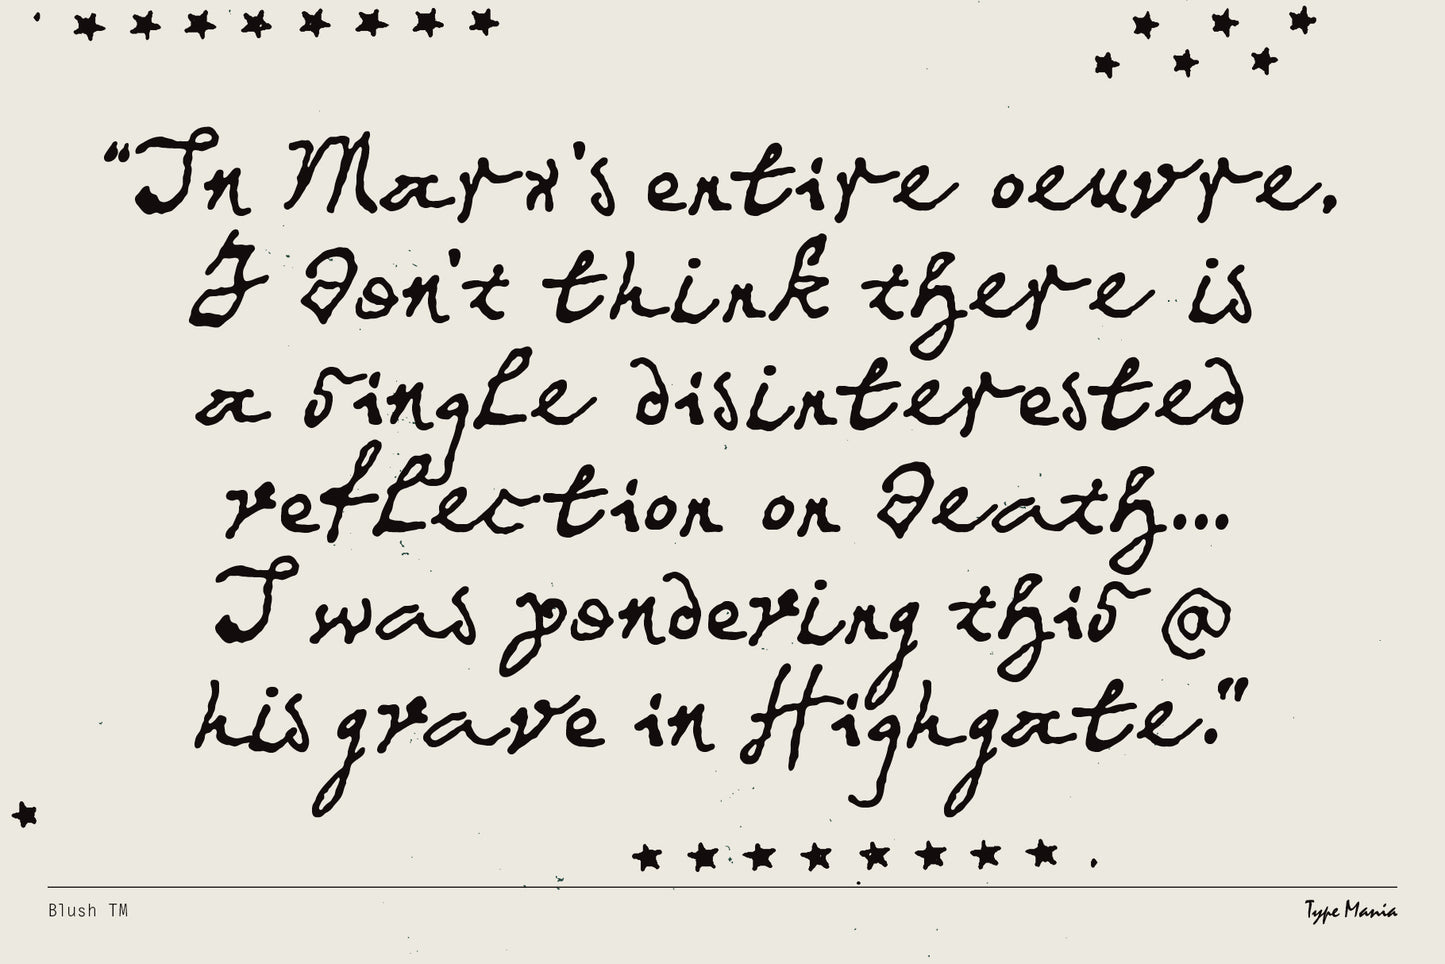 “In Marx's entire oeuvre.
I don't think there is
a single disinterested
reflection on death...
I was pondering this @
his grave in Highgate.”
Blush TM
Type Mania